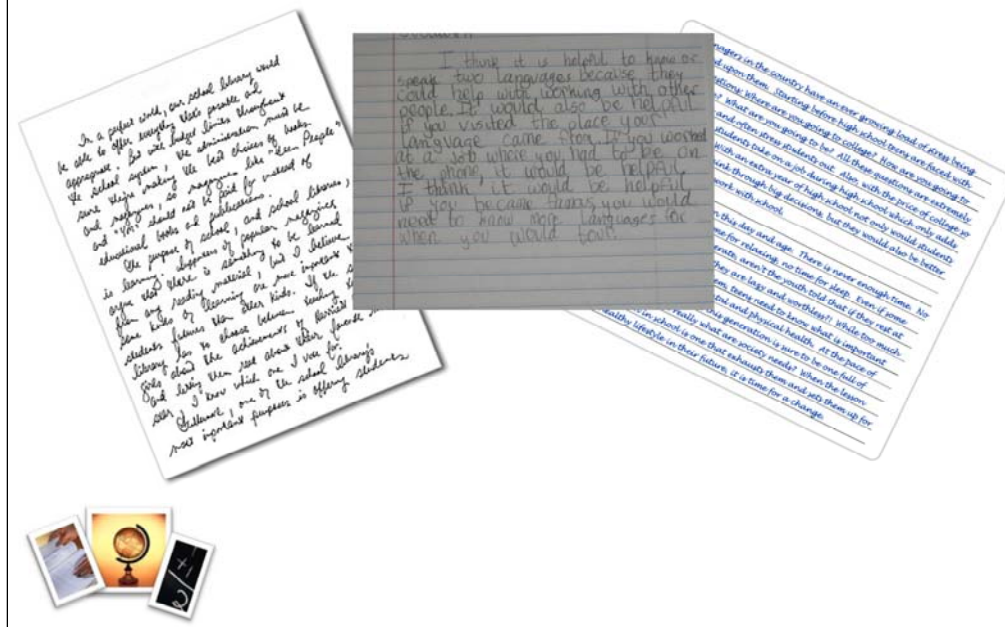 In a perfect world, our school library would
be able to offer everything that's possible and
appropriate. But with budget limits throughout
the school system, the administration must be
sure they're making the best choices of books
and magazines, so magazines like "Teen People"
and "YM" should not be paid for instead of
educational books and publications.
The purpose of school, and school libraries,
is learning. Supporters of popular magazines
argue that there is something to be learned
from any reading material, but I believe
some kinds of learning are more important
students futures than other kids. If the
library has to choose between
girls about the achievements of
and letting them read about their favorite
star, I know which one I vote for.
Furthermore, one of the school library's
most important purposes is offering students
I think it is helpful to know or
speak two languages because they
could help with working with other
people. It would also be helpful
if you visited the place your
language came from. If you worked
at a job where you had to be on
the phone, it would be helpful.
I think, it would be helpful
if you became famous you would
need to know more languages for
when you would tour.
nagers in the country have an ever growing load of stress being
d upon them. Starting before high school teens are faced with
estions: Where are you going to college? How are you going to
? What are you going to be? All these questions are extremely
and often stress students out. Also, with the price of college so
students take on a job during high school which only adds
With an extra year of high school not only would students
ink through big decisions, but they would also be better
work with school.
n this day and age. There is never enough time. No
me for relaxing, no time for sleep. Even if some
erate, aren't the youth told that if they rest at
they are lazy and worthless?! While too much
em, teens need to know what is important
ntal and physical health. At the pace of
this generation is sure to be one full of
really what are society needs? When the lesson
s in school is one that exhausts them and sets them up for
ealthy lifestyle in their future, it is time for a change.